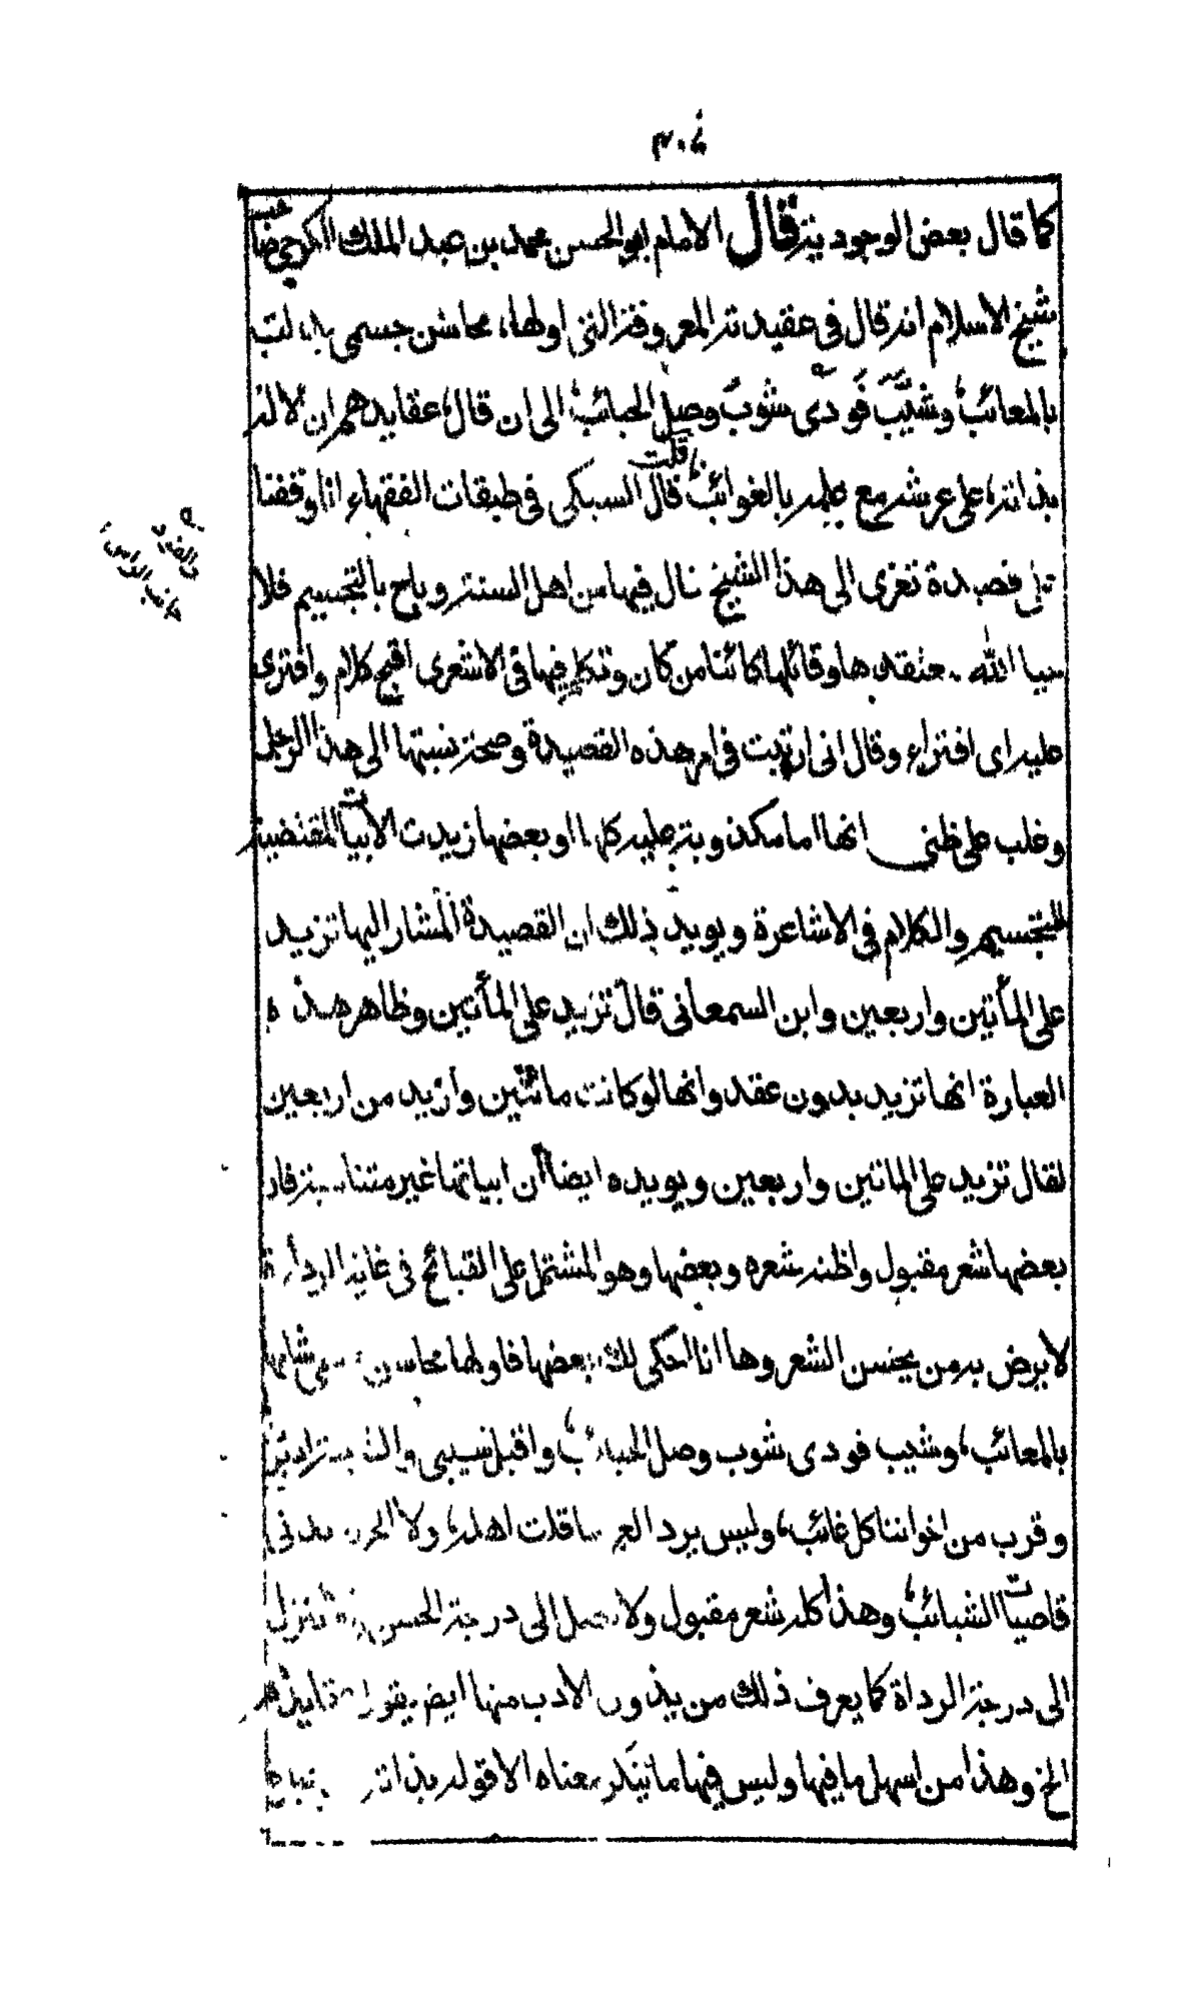 كما قال بعض الوجودية قال الامام ابو الحسن محمد بن عبد الملك الكرجي
شيخ الاسلام انه قال في عقيدته المعروفة التي اولها، محاسن جسمي بدلت
بالمعائب، وشيّب فَودى شوبُ وصل الحبائب، الى ان قال، عقايدهم ان الاله
بذاته، على عرشه مع علمه بالغوائب، قلت قال السبكي في طبقات الفقهاء انا وقفنا
على قصيدة تعزى الى هذا الشيخ نال فيها من اهل السنة وباح بالتجسيم فلا
حيا الله معتقدها وقائلها كائنا من كان وتكلم فيها في الاشعرى اقبح كلام وافترى
عليه اى افتراء وقال انى ارتبت في امر هذه القصيدة وصحة نسبتها الى هذا الرجل
وغلب على ظني انها اما مكذوبة عليه كلها او بعضها زيدت الابيات المقتضية
للتجسيم والكلام في الاشاعرة ويويد ذلك ان القصيدة المشار اليها تزيد
على المأتين واربعين وابن السمعانى قال تزيد على المأتين وظاهر هذه
العبارة انها تزيد بدون عقد وانها لو كانت مائتين وازيد من اربعين
لقال تزيد على المائتين واربعين ويويده ايضا أن ابياتها غير متناسبة فان
بعضها شعر مقبول واظنه شعره وبعضها وهو المشتمل على القبائح في غاية الردأة
لا يرض به من يحسن الشعر وها انا احكى لك بعضها فاولها محاسن
بالمعائب، وشيب فودى شوب وصل الحبائب، واقبل شيبى
وقرب من اخواننا كل غائب، وليس يرد العمر ما قلت اهله، ولا الحزن يدنى
قاصيات الشبائب، وهذا كله شعر مقبول ولا يصل الى درجة الحسن تنزل
الى درجة الرداة كما يعرف ذلك من يذوق الادب منها ايضا يقول عقايدهم
الخ وهذا من اسهل ما فيها وليس فيها ما ينكر معناه الا قوله بذاته
والفود
جانب الراس